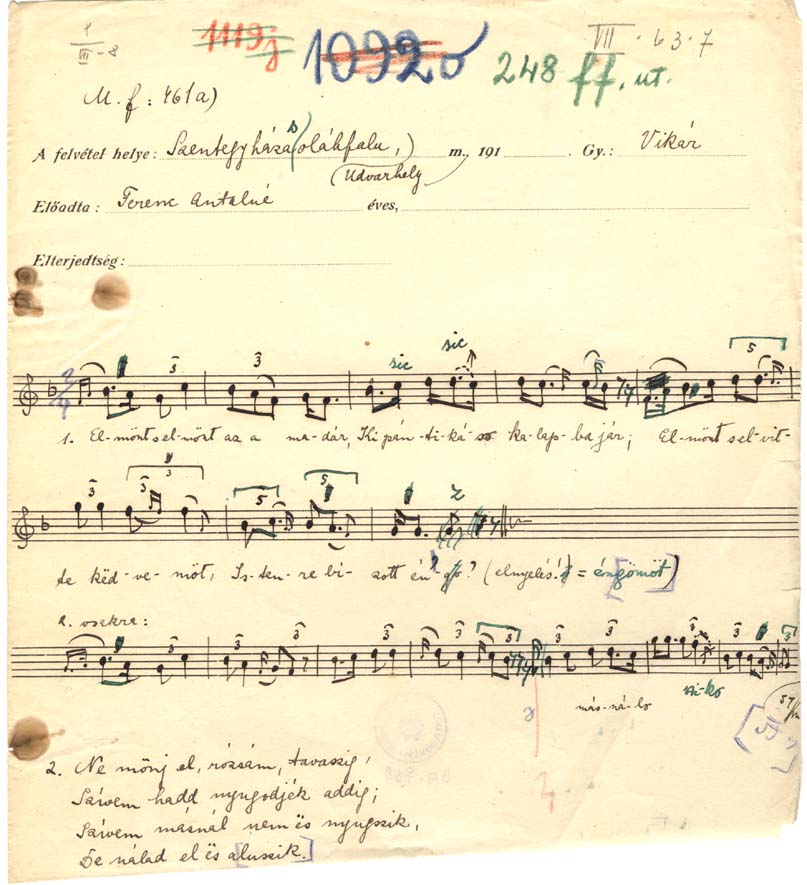 1/VII-8 1119j 10920 VII. 63.7
248 ff, ut.
M. f: 461a)
A felvétel helye: Szentegyházasoláhfalu, m., 191 . Gy.: Vikár
(Udvarhely)
Előadta: Ferenc Antalné éves,
Elterjedtség:
sic sic
3 3 5
2/4
1. El-mönt sel-mönt az a ma-dár, Ki pán-ti-ká-ss ka-lap-ba jár; El-mönt sel-vit-
3 3 5 5
te këd-ve-möt, Is-ten-re bi-zott én (elnyelés!) = éngömöt
2. vszakra:
3 3 3 3 3 3 3 3
más-nál
2. Ne mönj el, rózsám, tavaszig,
Szívem hadd nyugodjék addig;
Szívem másnál nem és nyugszik,
De nálad el és aluszik.